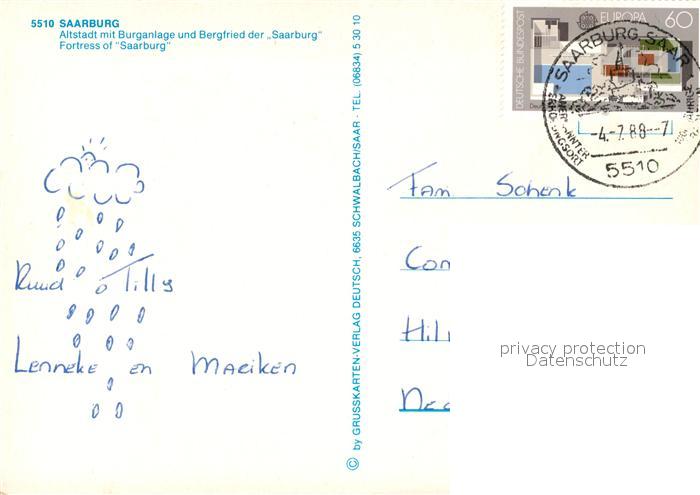 5510 SAARBURG
Altstadt mit Burganlage und Bergfried der „Saarburg"
Fortress of "Saarburg"
Ruud o Tilly
Lenneke en Mariken
© by GRUSSKARTEN-VERLAG DEUTSCH, 6635 SCHWALBACH/SAAR · TEL. (06834) 5 30 10
DEUTSCHE BUNDESPOST
EUROPA 60
SAARBURG, SAAR
ANERKANNTER
ERHOLUNGSORT
-4.-7.88--7
5510
Fam Schenk
Con
Hil
Ned
privacy protection
Datenschutz